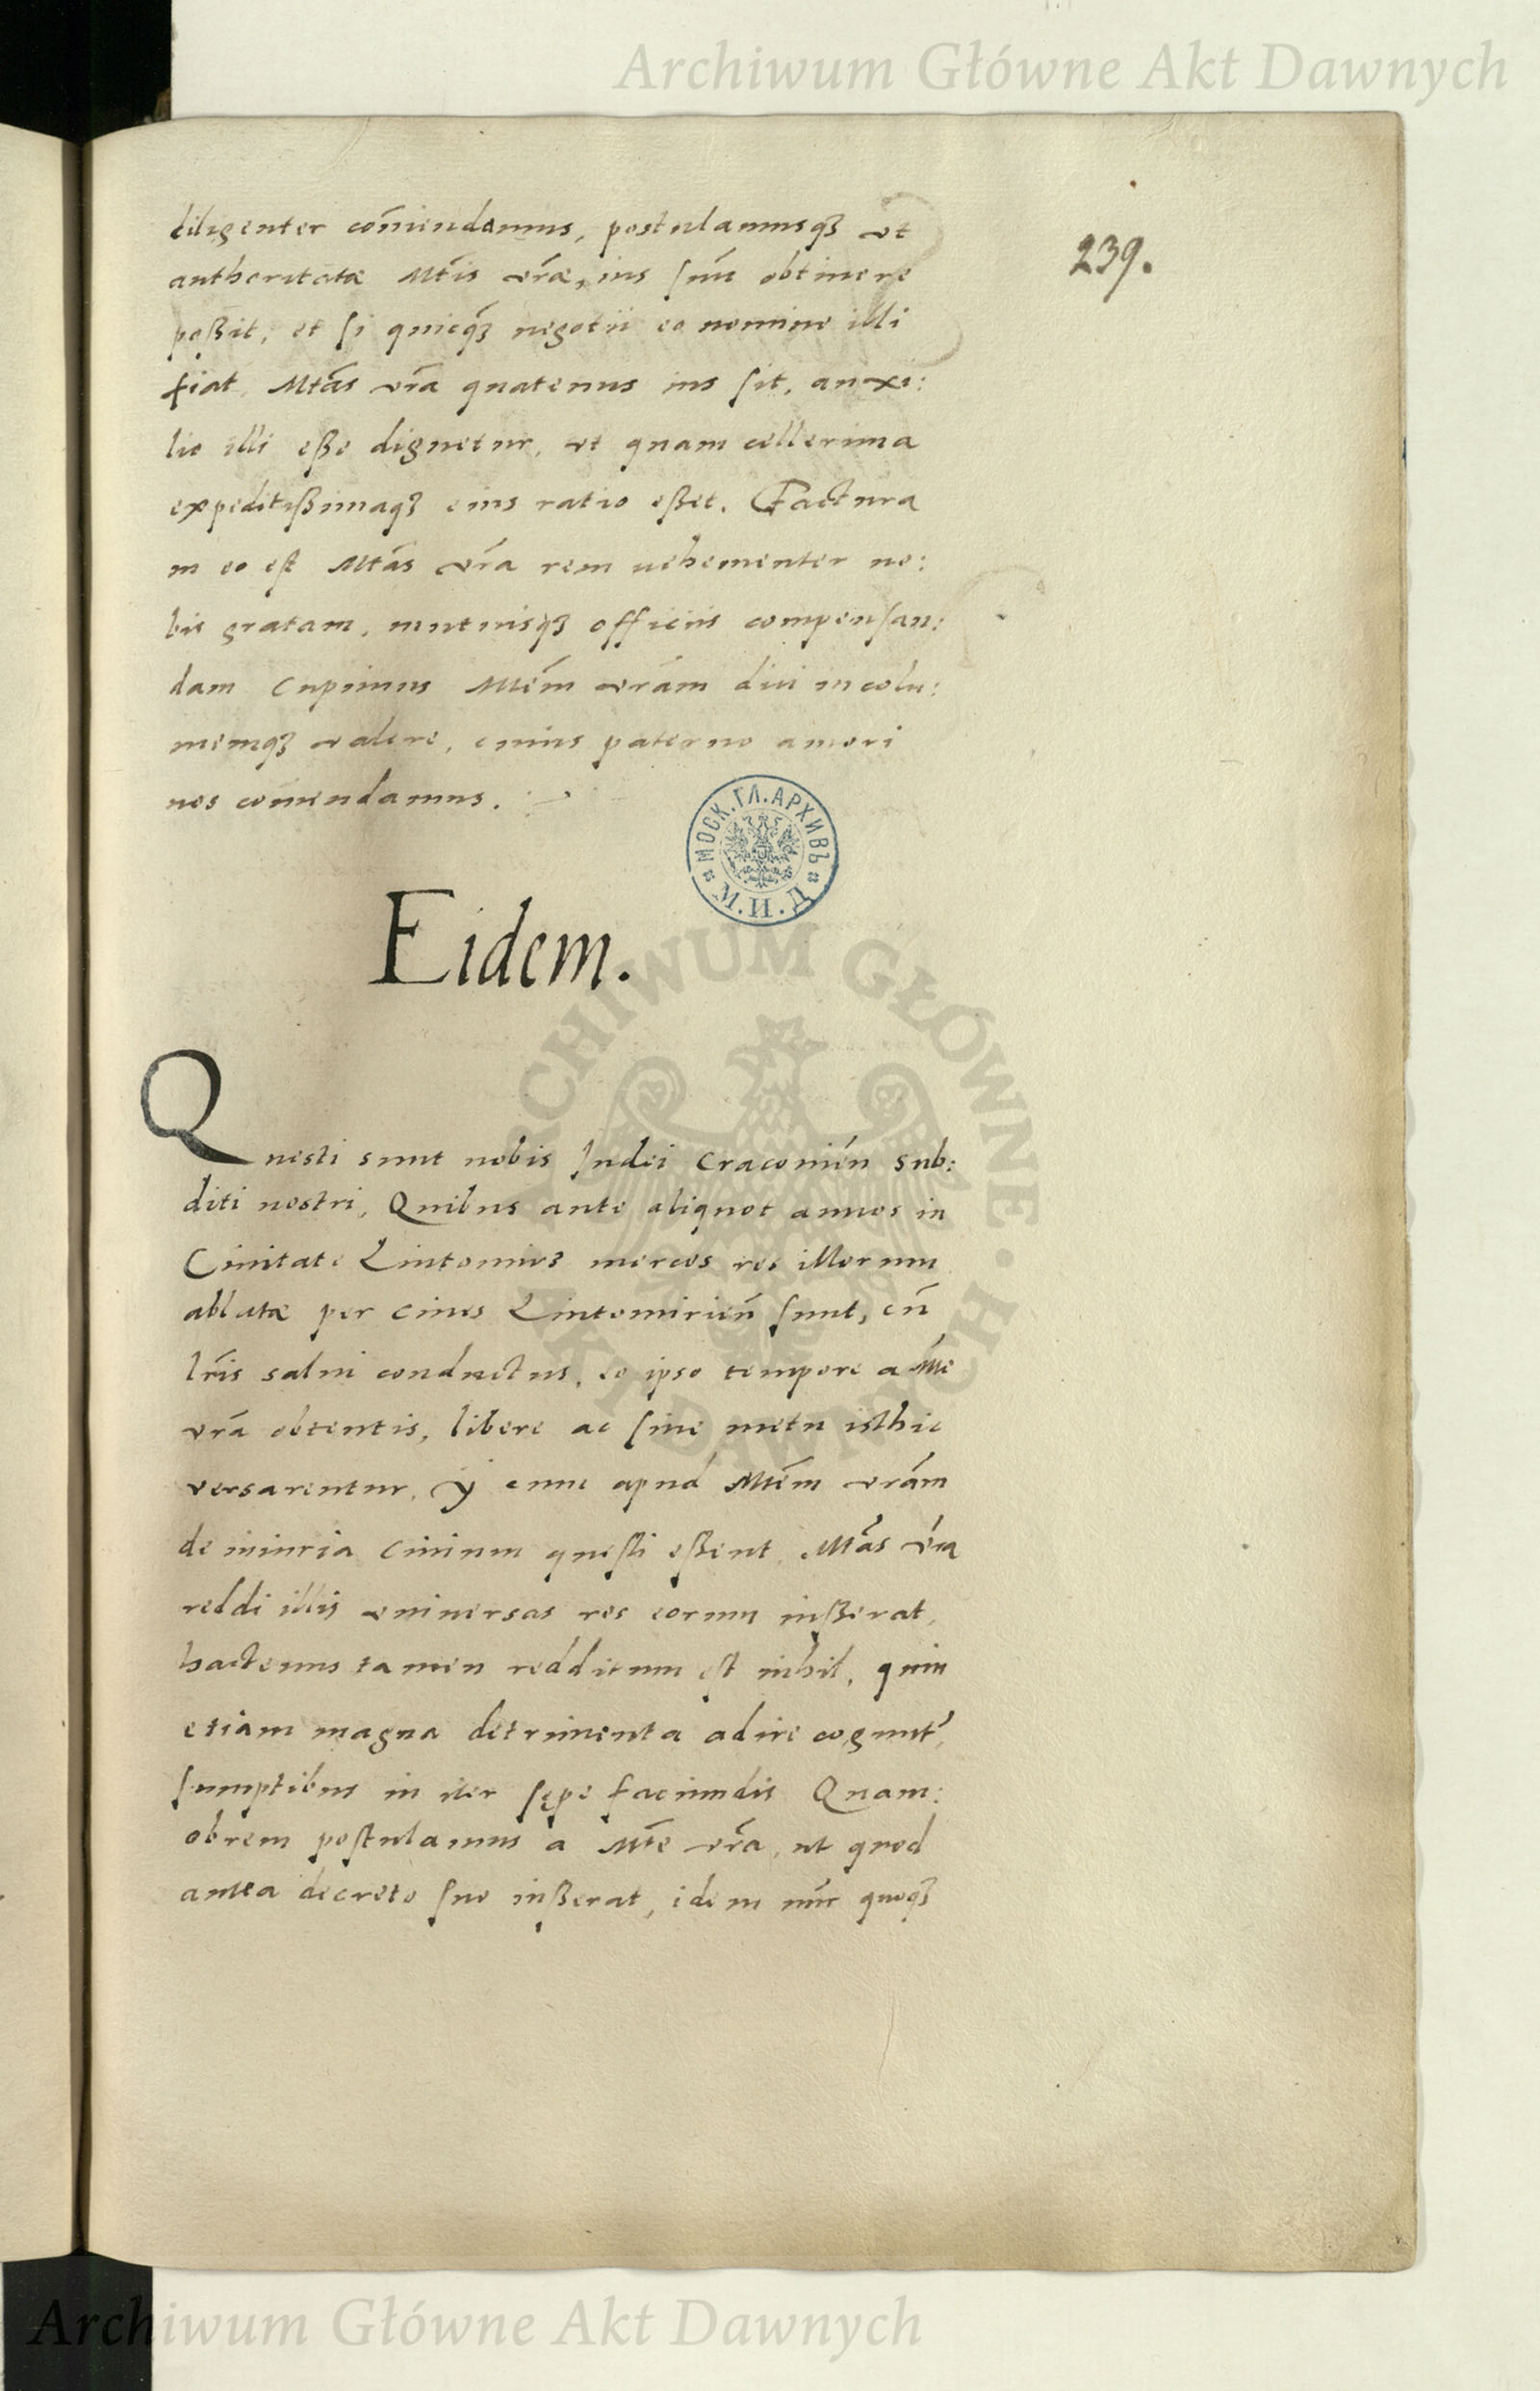 Archiwum Główne Akt Dawnych
239.
diligenter com̄endamus, postulamusq₃ vt
authoritatæ Mt̄is vr̄æ, ius suū obtinere
poßit, et si quicq̄₃ negotii eo nomine illi
fiat, Mtās vr̄a quatenus ius sit, auxi:
lio illi eße dignetur, vt quam cellerima
expeditißimaq₃ eius ratio eßet. Factura
in eo est Mtās vr̄a rem uehementer no:
bis gratam, mutuisq₃ officiis compensan:
dam Cupimus Mtēm vrām diu incolu:
memq₃ valere, cuius paterno amori
nos com̄endamus.
МОСК.ГЛ.АРХИВЪ
М.И.Д.
Eidem.
Questi sunt nobis Judei Cracouien̄ Sub:
diti nostri, Quibus ante aliquot annos in
Ciuitate Lintomirz merces res illorum
ablatæ per ciues Lintomirien̄ sunt, cū
lr̄is salui conductus, eo ipso tempore a Mte
vr̄a obtentis, libere ac sine metu isthic
versarentur, ij cum apud Mtēm vrām
de iniuria Ciuium questi eßent, Mtās vr̄a
reddi illis vniuersas res eorum iußerat,
hactenus tamen redditum est nihil, quin
etiam magna detrimenta adire cogunt̄,
sumptibus in iter sępe faciundis Quam:
obrem postulamus a Mte vr̄a, ut quod
antea decreto suo iußerat, idem nūc quoq₃
ARCHIWUM GŁÓWNE AKT DAWNYCH
Archiwum Główne Akt Dawnych